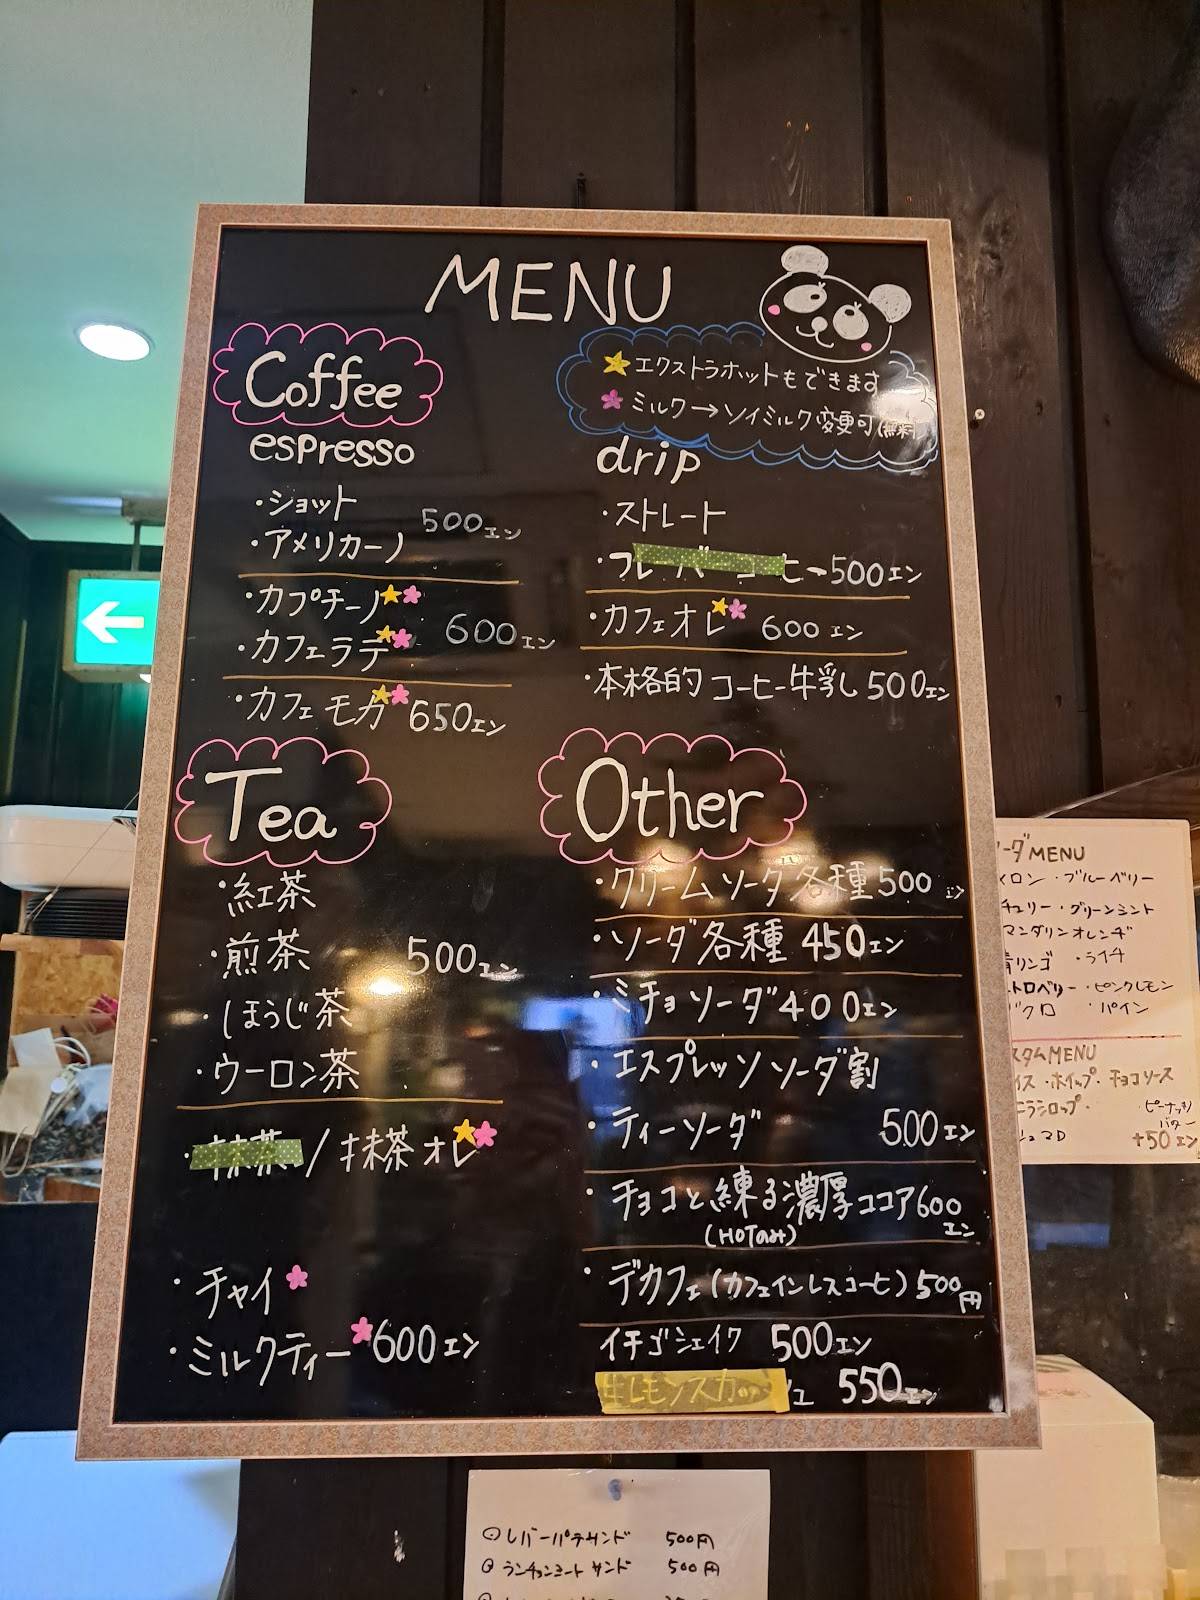 MENU
Coffee
エクストラホットもできます
ミルク→ソイミルク変更可(無料)
espresso
・ショット
・アメリカーノ 500エン
・カプチーノ
・カフェラテ 600エン
・カフェモカ 650エン
drip
・ストレート
・フレーバーコーヒー500エン
・カフェオレ 600エン
・本格的コーヒー牛乳 500エン
Tea
・紅茶
・煎茶 500エン
・ほうじ茶
・ウーロン茶
・抹茶/抹茶オレ
・チャイ
・ミルクティー 600エン
Other
・クリームソーダ各種 500エン
・ソーダ各種 450エン
・ミチョソーダ400エン
・エスプレッソソーダ割
・ティーソーダ 500エン
・チョコと練る濃厚ココア600エン
(HOTのみ)
・デカフェ(カフェインレスコーヒー)500円
イチゴシェイク 500エン
生レモンスカッシュ 550エン
ーダMENU
メロン・ブルーベリー
チェリー・グリーンミント
マンダリンオレンヂ
青リンゴ ・ライチ
トロベリー・ピンクレモン
ザクロ ・パイン
スタムMENU
イス・ホイップ・チョコソース
ニラシロップ・ ピーナッツバター
+50エン
レバーパテサンド 500円
ランチョンミートサンド 500円